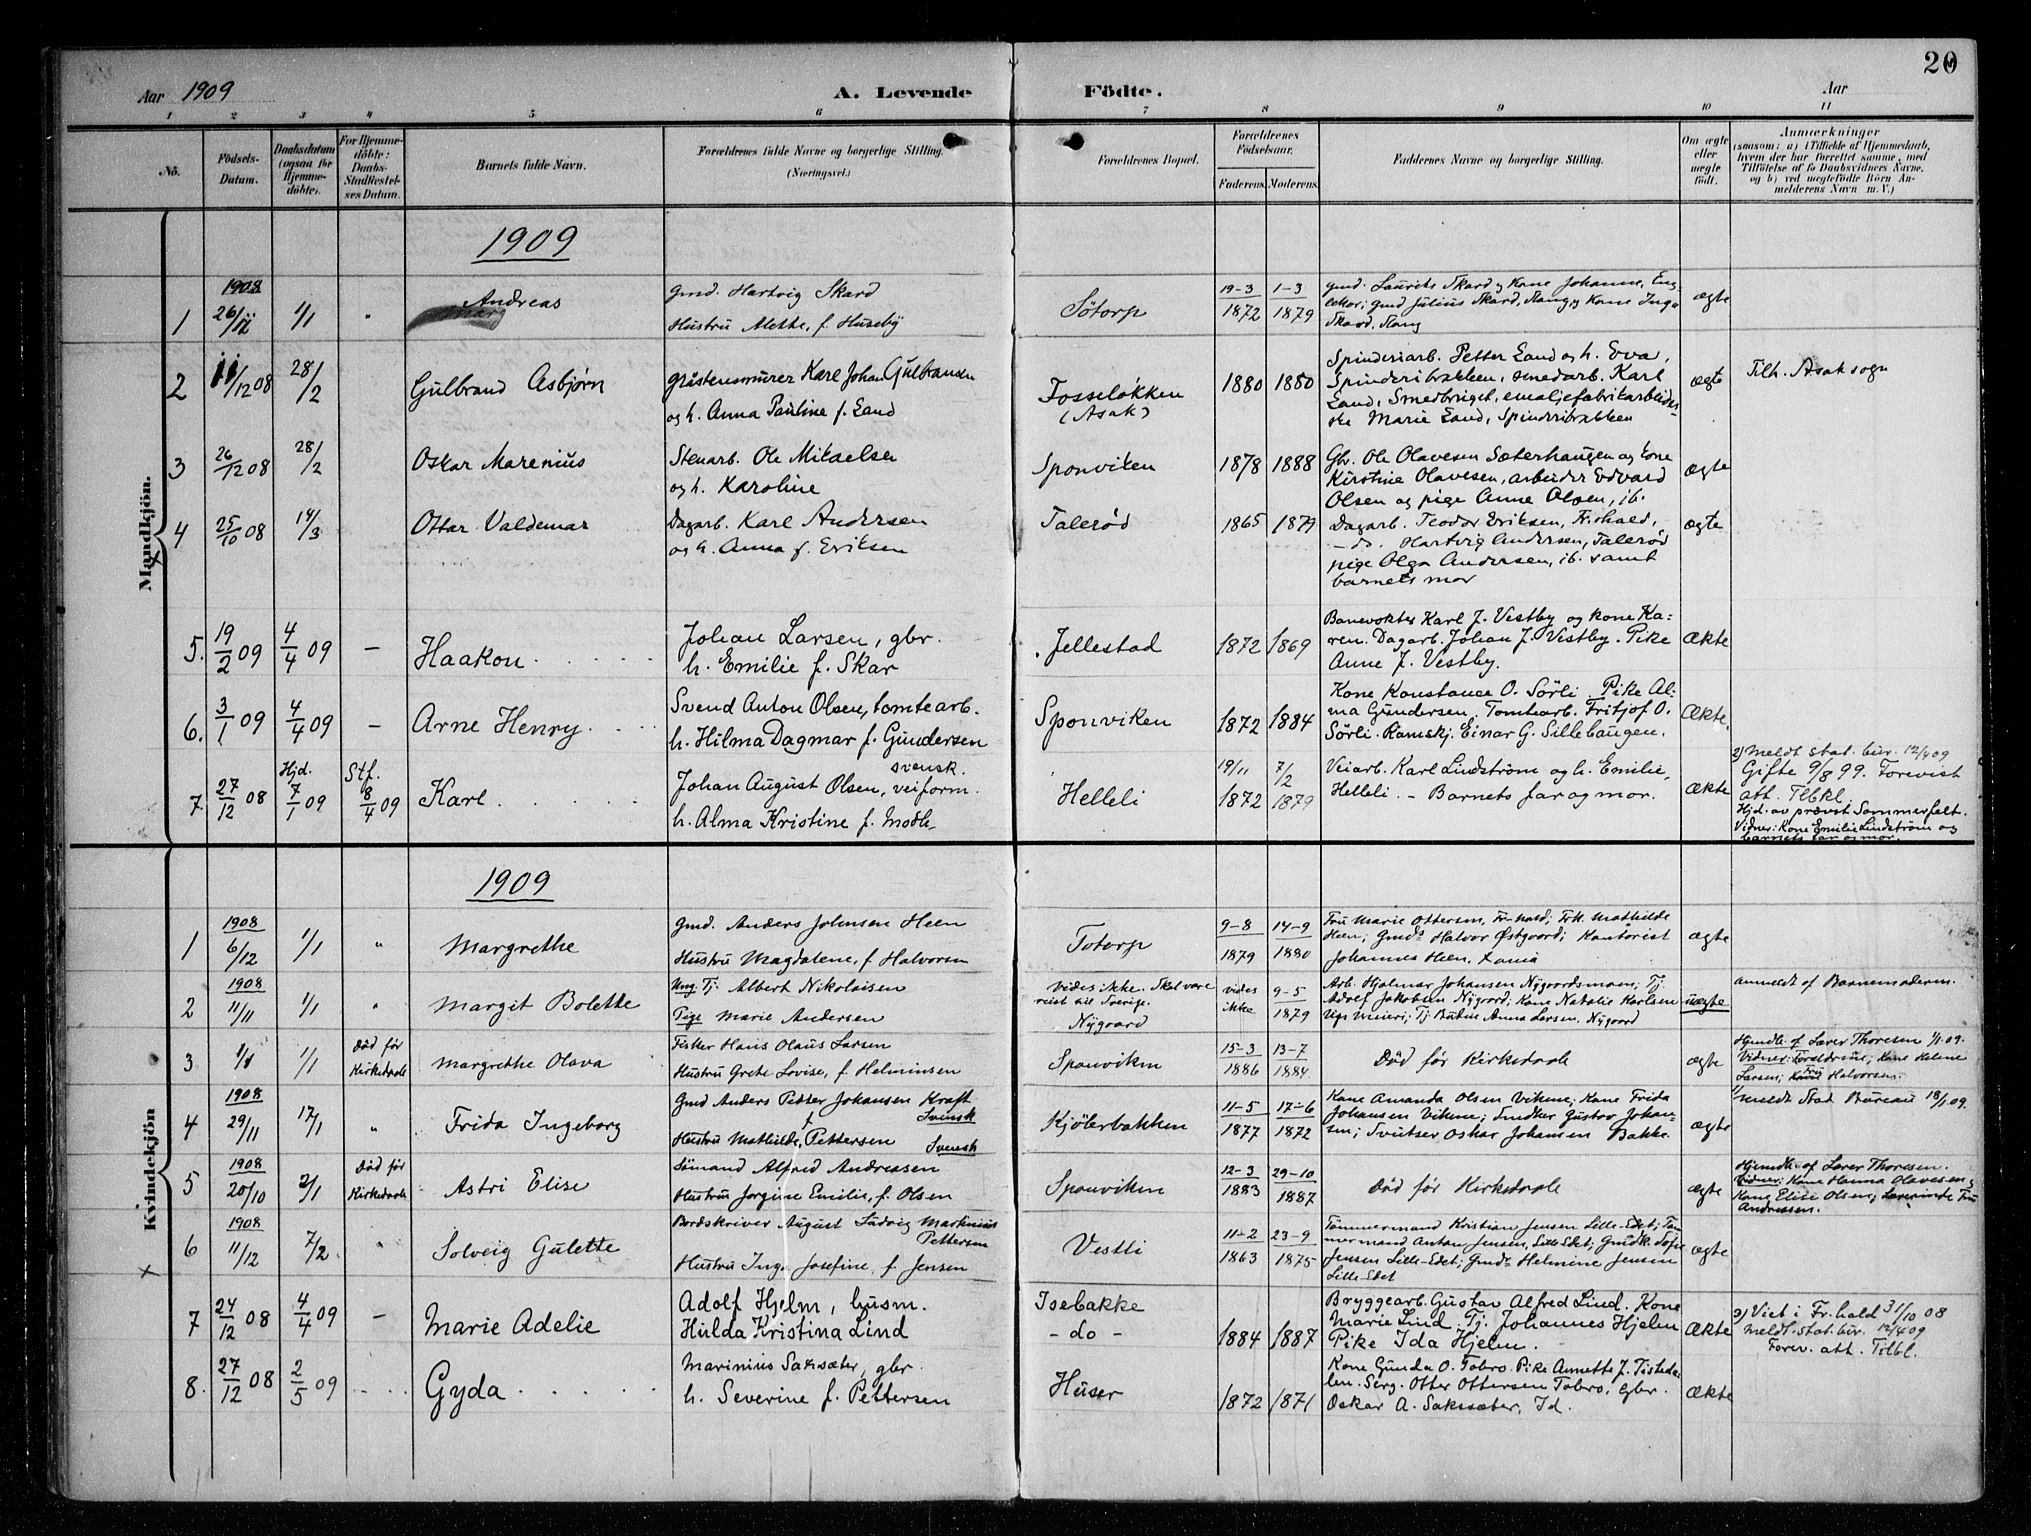 20
Aar 1909
A. Levende Födte.
Aar
1 2 3 4 5 6 7 8 9 10 11
No.
Födsels-
Datum.
Daabsdatum
(ogsaa for
Hjemme-
döbte).
For Hjemme-
döbte:
Daabs-
Stadfæstel-
ses Datum.
Barnets fulde Navn.
Forældrenes fulde Navne og borgerlige Stilling.
(Næringsvei.)
Forældrenes Bopæl.
Forældrenes
Födselsaar.
Faderens. Moderens.
Faddernes Navne og borgerlige Stilling.
Om ægte
eller
uægte
født.
Anmærkninger
(saasom: a) i Tilfælde af Hjemmedaab,
hvem der har forrettet samme, med
Tilföielse af to Daabsvidners Navne,
og b) ved uægtefödte Börn An-
melderens Navn m. V.)
Mandkjön.
1909
1 1908 26/12 1/1 " Andreas
Gmd. Hartvig Skard
Hustru Alette, f. Huseby
Sötorp
19-3 1872 1-3 1879
gmd. Laurits Skard og Kone Johanne,
gmd Julius Skard, Stang, og Kone Inga
Skard, Stang
ægte
2 11/12 08 28/2 Gulbrand Asbjørn
gråstensmurer Karl Johan Gulbransen
og h. Anna Pauline f. Land
Fosseløkken
(Asak)
1880 1880
Spinderiarb. Petter Land og h. Eva,
Spinderibakken, smedarb. Karl
Land, Smedbriget, emaljefabrikarbeider-
ske Marie Land, Spinderibakken
ægte
Tilh. Asak sogn
3 26/12 08 28/2 Oskar Marenius
Stenarb. Ole Mikaelsen
og h. Karoline
Sponviken
1878 1888
Gbr. Ole Olavesen Sæterhaugen og kone
Kirstine Olavesen, arbeider Edvard
Olsen og pige Anne Olsen, ib.
ægte
4 25/10 08 14/3 Ottar Valdemar
Dagarb. Karl Andersen
og h. Anna f. Eriksen
Talerød
1865 1879
Dagarb. Teodor Eriksen, Fr.hald,
- do. Hartvig Andersen, Talerød
pige Olga Andersen, ib. samt
barnets mor
ægte
5. 19/2 09 4/4 09 - Haakon
Johan Larsen, gbr.
h. Emilie f. Skar
Jellestad
1872 1869
Banevokter Karl J. Vestby og kone Ka-
ren. Dagarb. Johan J. Vestby. Pike
Anne J. Vestby.
Ækte
6. 3/1 09 4/4 09 - Arne Henry
Svend Anton Olsen, tomtearb.
h. Hilma Dagmar f. Gundersen
Sponviken
1872 1884
Kone Konstance O. Sörli. Pike Al-
ma Gundersen, Tomtearb. Fritjof O.
Sörli. Kamskj. Einar G. Sillebaugen.
Ækte.
7. 27/12 08 Hjd. 7/1 09 Stf. 8/4 09 Karl
svensk.
Johan August Olsen, veiform.
h. Alma Kristine f. Modh
Helleli
19/11 1872 7/2 1879
Veiarb. Karl Lindström og h. Emilie,
Helleli. - Barnets far og mor.
Ækte
2) Meldt stat. bur. 12/4 09
Gifte 9/8 99. Forevist
att. Tlbkl.
Hjd. av prövst Sommerfelt.
Vidner: Kone Emilie Lindström og
barnets far og mor.
Kvindekjön
1909
1 1908 6/12 1/1 " Margrethe
Gmd. Anders Johnsen Heen
Hustru Magdalene, f. Halvorsen
Totorp
9-8 1879 14-9 1880
Fru Marie Ottersen, Fr-hald; Frk. Mathilde
Heen; Gmds Halvor Østgaard; Kontorist
Johannes Heen,
ægte
2 1908 11/11 1/1 " Margit Bolette
Ung. Tj. Albert Nikolaisen
Pige Marie Andersen
vides ikke. Skal være
reist til Sverige.
Nygaard
vides ikke 9-5 1879
Arb. Hjalmar Johansen Nygaardsmoen; Tj.
Adolf Jakobsen Nygaard; Kone Natalie Karlsen
Ups Meieri; Tj. Budeie Anna Larsen, Nygaard
uægte
anmeldt af Barnemoderen.
3 1/1 1/1 Död før
Kirkedaab
Margrethe Olava
Fisker Hans Olaus Larsen
Hustru Grete Lovise, f. Helminsen
Sponviken
15-3 1886 13-7 1884.
Död før Kirkedaab
ægte
Hjemdb. af Lærer Thoresen 1/1 09.
Vidner: Forældrene; Kone Helene
Larsen; Fru Halvorsen.
4 1908 29/11 17/1 " Frida Ingeborg
Gmd Anders Petter Johansen Kraft
Svensk
Hustru Mathilde, f Pettersen
Svensk
Kjølerbakken
11-5 1877 17-6 1872
Kone Amanda Olsen Vikene; Kone Frida
Johansen Vikene; Snedker Gustav Johan-
sen; Sveitser Oskar Johansen Bakke.
ægte
1/ meldt Stat Bureau 18/1 09.
5 1908 20/10 2/1 Död før
Kirkedaab
Astri Elise
Sömand Alfred Andreasen
Hustru Jorgine Emilie, f. Olsen
Sponviken
12-3 1883 29-10 1887
Död før Kirkedaab
ægte
Hjemdb. af Lærer Thoresen.
Vidner: Kone Hanna Olavesen,
Kone Elise Olsen, Lærerinde Fru
Andreasen.
6 1908 11/12 7/2 " Solveig Gulette
Bordskriver August Ludvig Martinius
Pettersen
Hustru Inga Josefine f. Jensen
Vestli
11-2 1863 23-9 1875
Tömmermand Kristian Jensen Lille-Edet; Tøm-
mermand Anton Jensen, Lille Edet; Gmdk. Sofie
Jensen Lille-Edet; Gmds Helmine Jensen
Lille-Edet
ægte
7 24/12 08 4/4 09 - Marie Adelie
Adolf Hjelm, husm.
Hulda Kristina Lind
Isebakke
- do -
1884 1887
Bryggearb. Gustav Alfred Lind. Kone
Marie Lind. Tj. Johannes Hjelm
Pike Ida Hjelm.
Ækte
2) Viet i Fr.hald 31/10 08
Meldt. stat. bur. 12/4 09
Forev. att. Tilbl.
8. 27/12 08 2/5 09 Gyda
Marinius Saksæter, gbr.
h. Severine f. Pettersen
Huser
1872 1871
Kone Gunda O. Tobro. Pike Annette J. Tisteda-
len. Serg. Otter Ottersen Tobro, gbr.
Oskar A. Saksæter, Id.
Ækte